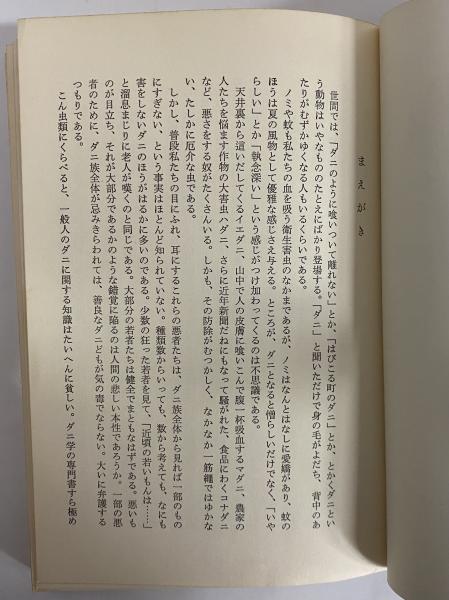 まえがき
世間では、「ダニのように喰いついて離れない」とか、「はびこる町のダニ」とか、とかくダニとい
う動物はいやなもののたとえにばかり登場する。「ダニ」と聞いただけで身の毛がよだち、背中のあ
たりがむずかゆくなる人もいるくらいである。
ノミや蚊も私たちの血を吸う衛生害虫のなかまであるが、ノミはなんとはなしに愛嬌があり、蚊の
ほうは夏の風物として優雅な感じさえ与える。ところが、ダニとなると憎らしいだけでなく、「いや
らしい」とか「執念深い」という感じがつけ加わってくるのは不思議である。
天井裏から這いだしてくるイエダニ、山中で人の皮膚に喰いこんで腹一杯吸血するマダニ、農家の
人たちを悩ます作物の大害虫ハダニ、さらに近年新聞だねにもなって騒がれた、食品にわくコナダニ
など、悪さをする奴がたくさんいる。しかも、その防除がむつかしく、なかなか一筋縄ではゆかな
い、たしかに厄介な虫である。
しかし、普段私たちの目にふれ、耳にするこれらの悪者たちは、ダニ族全体から見れば一部のもの
にすぎない、という事実はほとんど知られていない。種類数からいっても、数から考えても、なにも
害をしないダニのほうがはるかに多いのである。少数の狂った若者を見て、「近頃の若いもんは……」
と溜息まじりに老人が嘆くのと同じである。大部分の若者たちは健全でまともなはずである。悪いも
のが目立ち、それが大部分であるかのような錯覚に陥るのは人間の悲しい本性であろうか。一部の悪
者のために、ダニ族全体が忌みきらわれては、善良なダニどもが気の毒でならない。大いに弁護する
つもりである。
こん虫類にくらべると、一般人のダニに関する知識はたいへんに貧しい。ダニ学の専門書すら極め